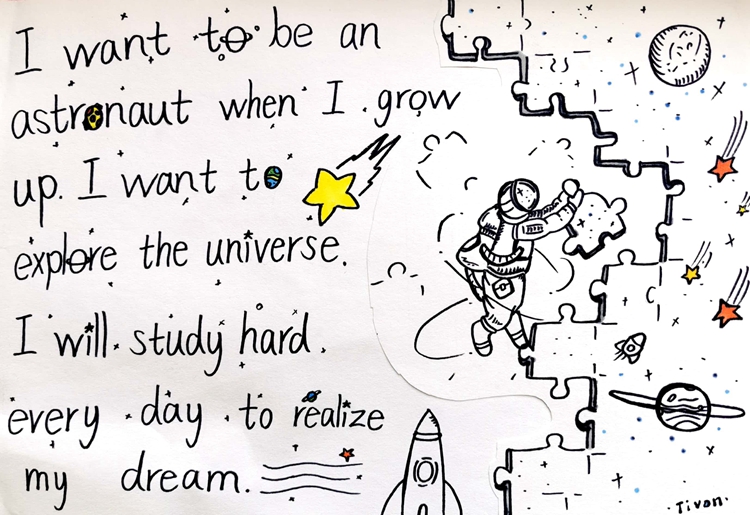 I want to be an
astronaut when I grow
up. I want to
explore the universe.
I will study hard.
every day to realize
my dream.
Tivan.